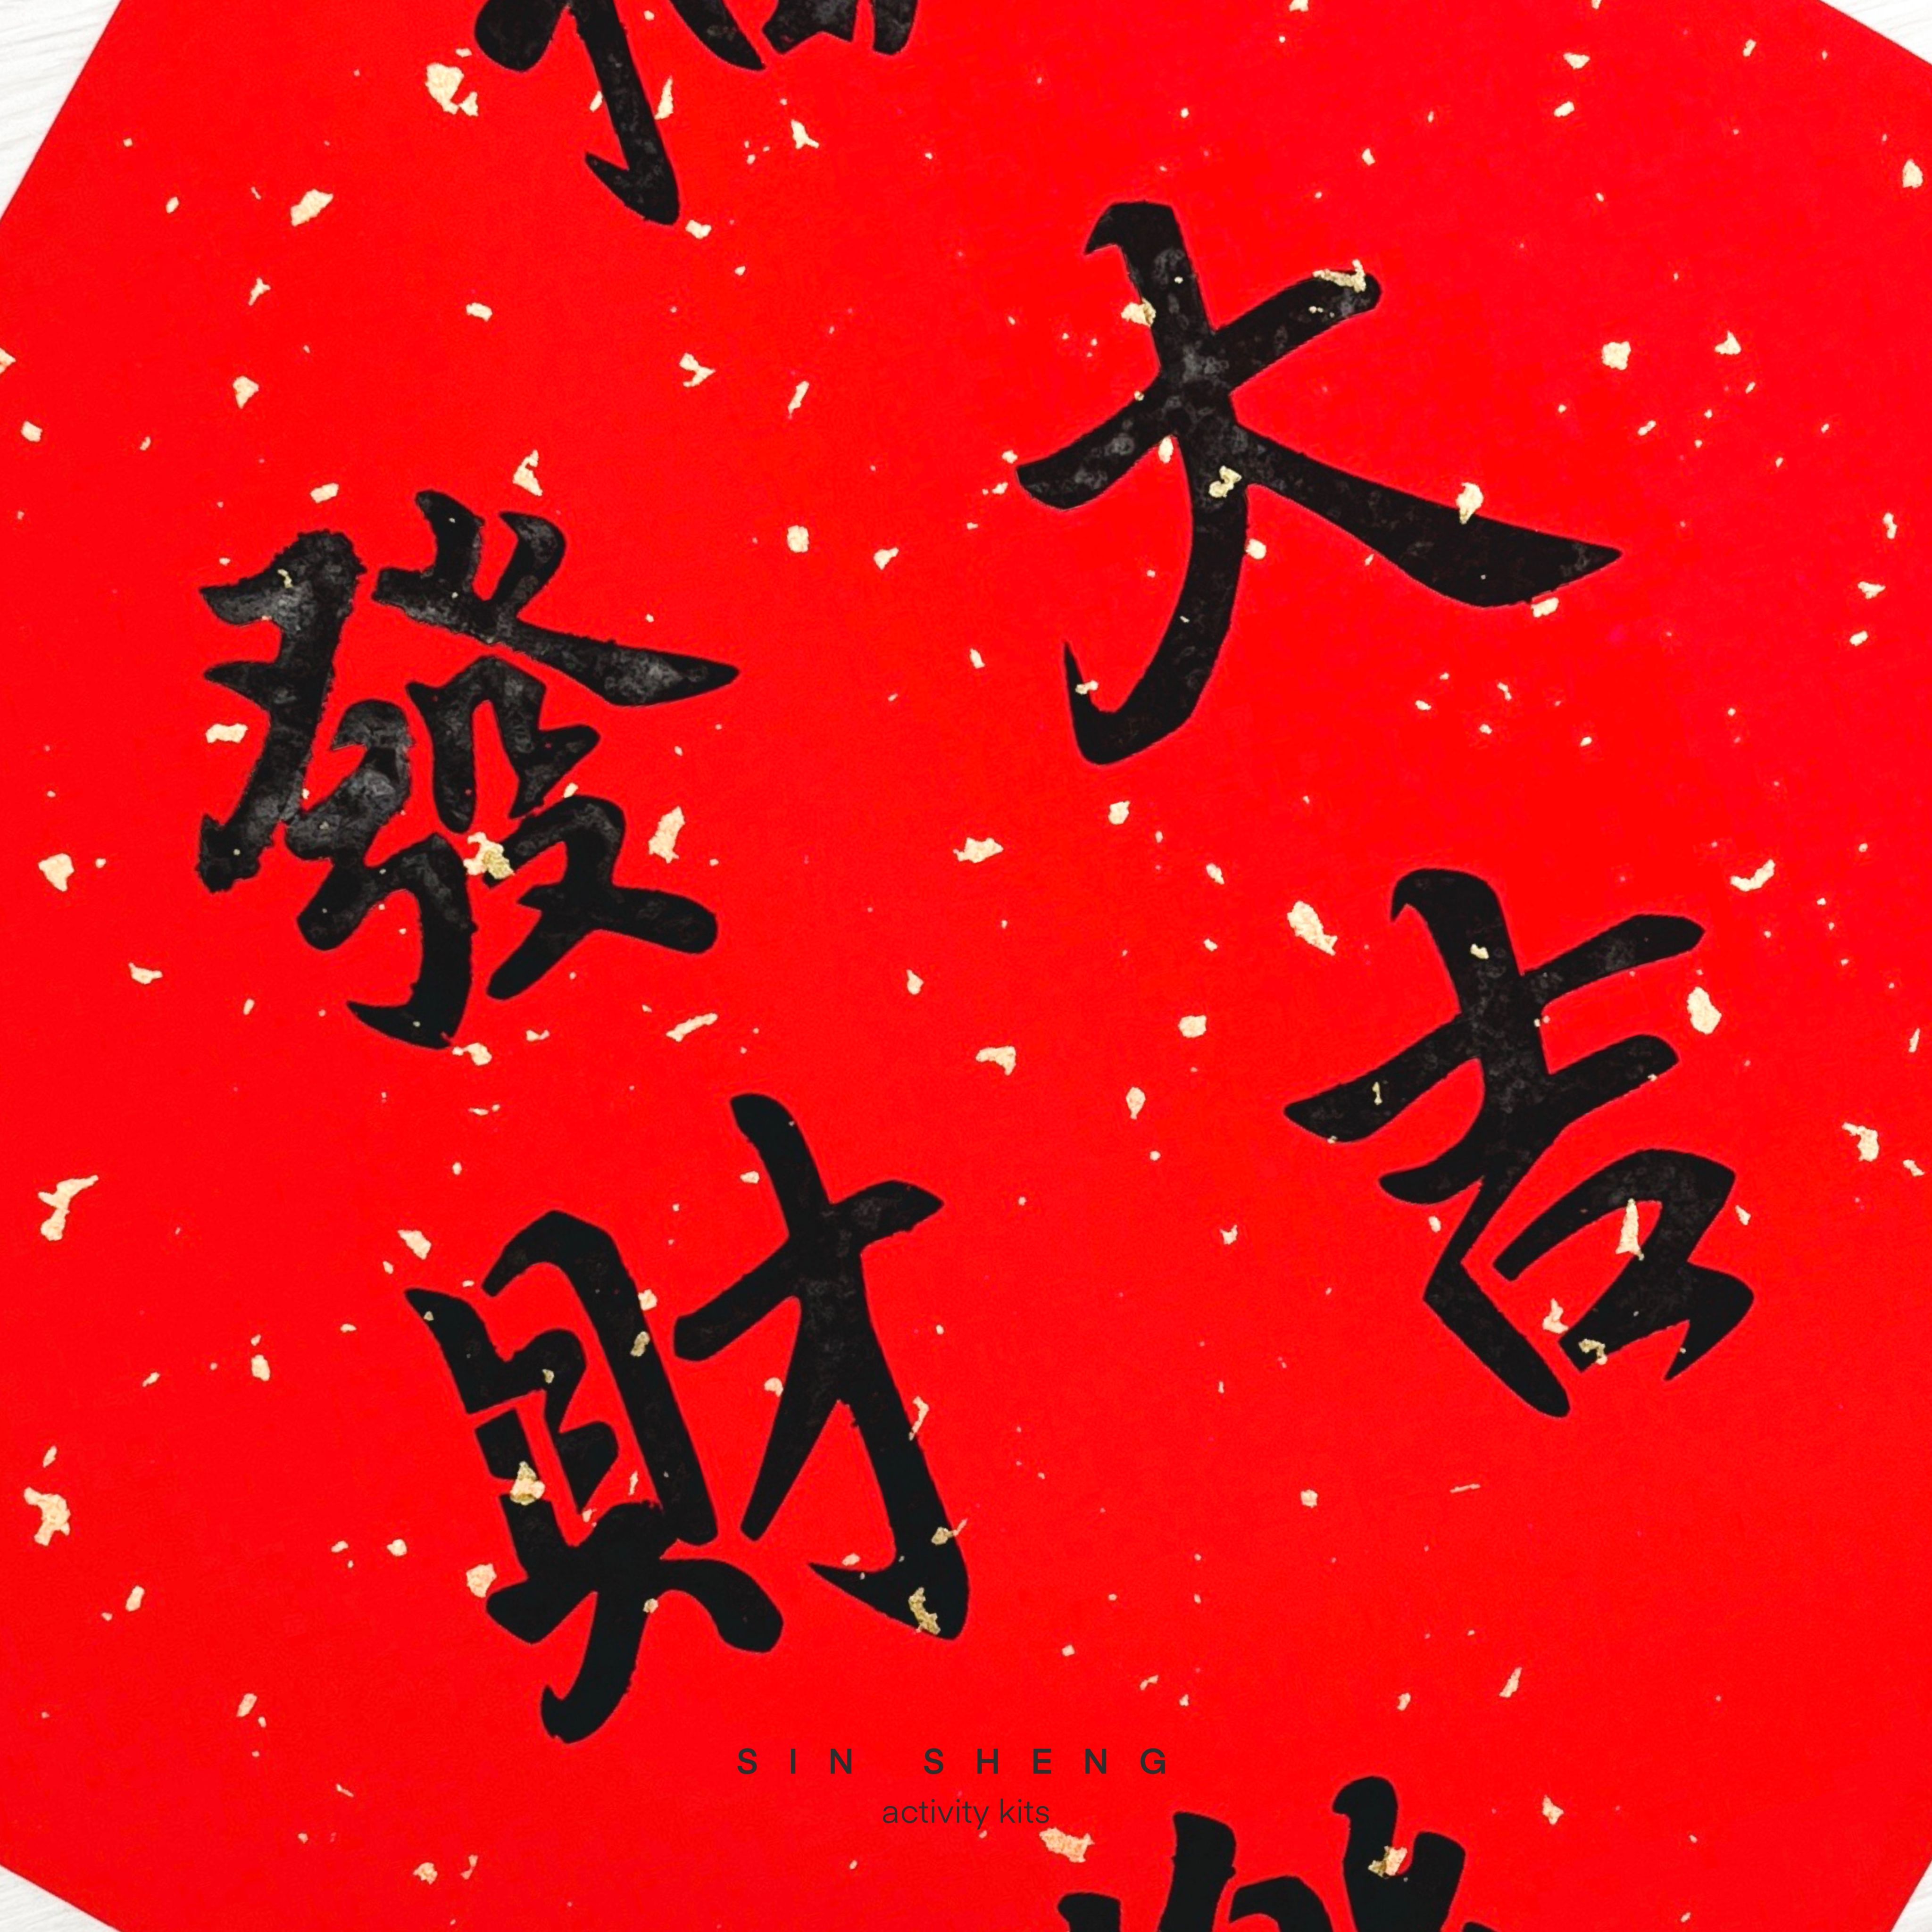 大吉
發財
SIN SHENG
activity kits